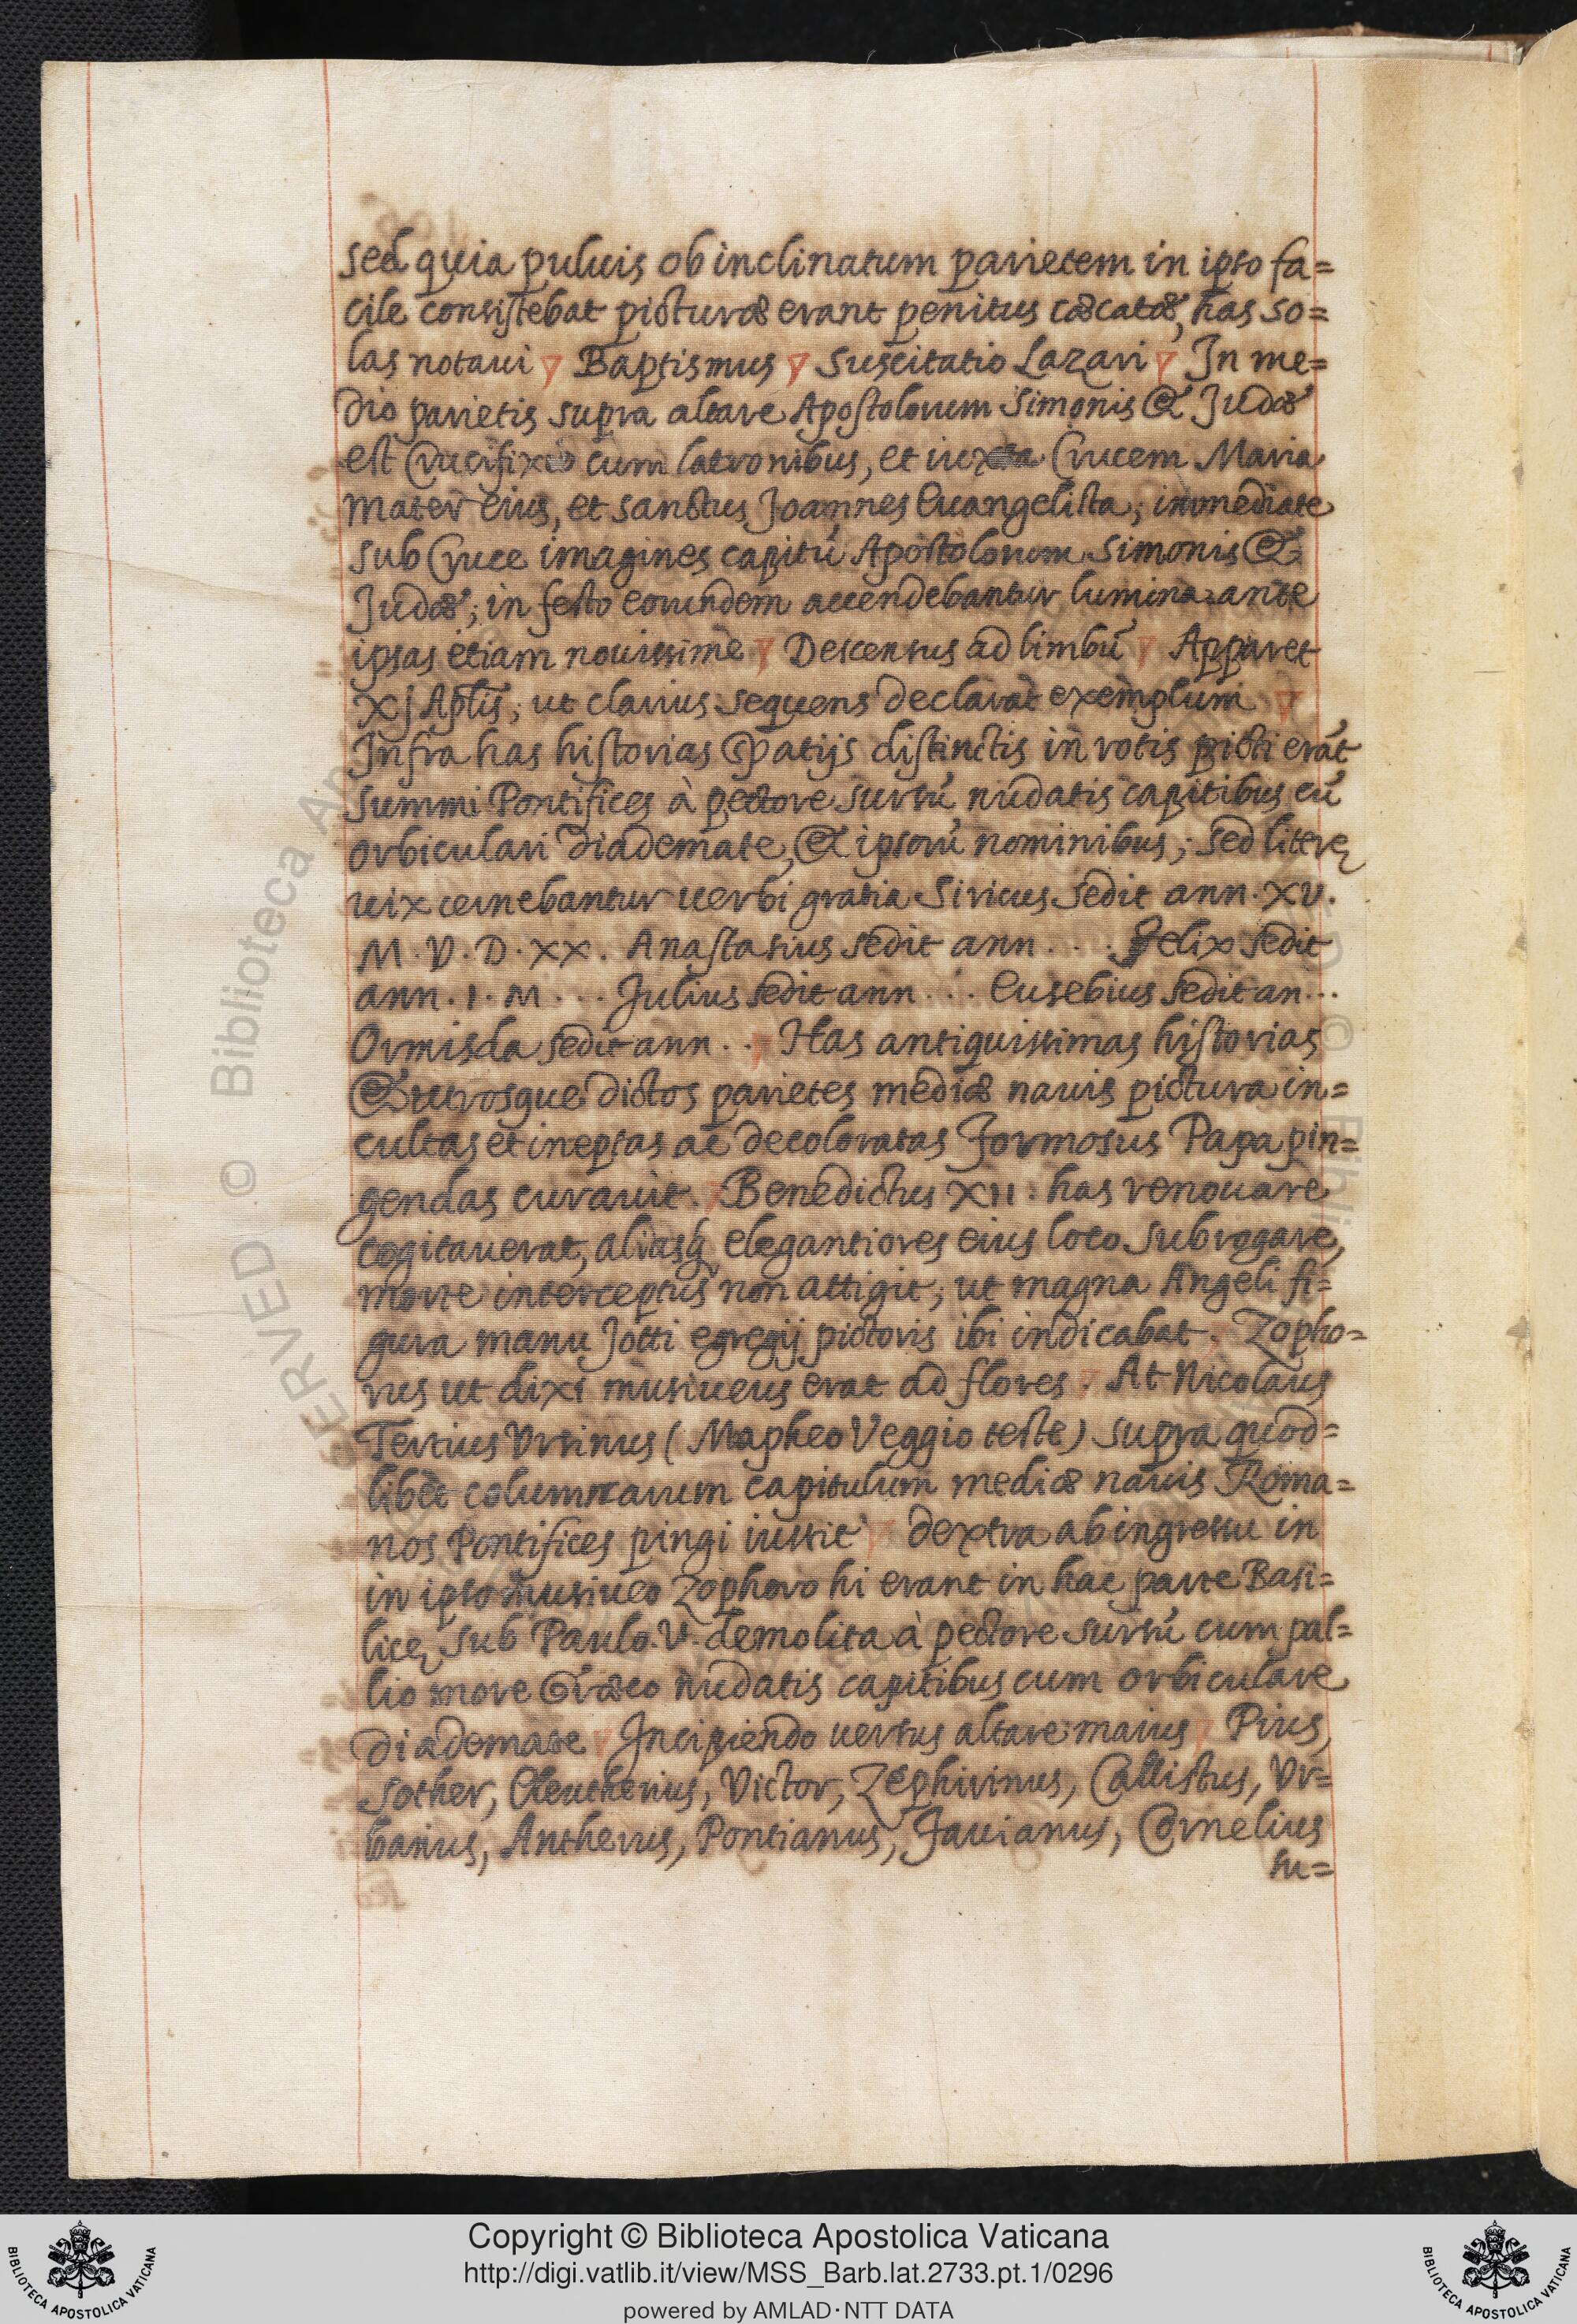 sed quia puluis ob inclinatum parietem in ipso fa=
cile consistebat picturæ erant penitus cæcatæ, has so=
las notaui Baptismus Suscitatio Lazari In me=
dio parietis supra altare Apostolorum Simonis & Judæ
est Crucifixio cum latronibus, et iuxta Crucem Maria
mater eius, et sanctus Joannes Euangelista; immediate
sub Cruce imagines capitū Apostolorum Simonis &
Judæ; in festo eorundem accendebantur lumina ante
ipsas etiam nouissime Descensus ad limbū Apparet
Xj Aplis, ut clarius sequens declarat exemplum
Infra has historias spatijs distinctis in rotis picti erāt
summi Pontifices à pectore sursū nudatis capitibus cū
orbiculari diademate, & ipsorū nominibus; sed literę
uix cernebantur uerbi gratia Siricus sedit ann. XV.
M. V. D. XX. Anastasius sedit ann . . . Felix sedit
ann. I. M . . . Julius sedit ann . . . Eusebius sedit an...
Ormisda sedit ann . . Has antiquissimas historias
& utrosque dictos parietes mediæ nauis pictura in=
cultas et ineptas ac decoloratas Formosus Papa pin=
gendas curauit. Benedictus XII. has renouare
cogitauerat, aliasq elegantiores eius loco subrogare,
morte interceptus non attigit; ut magna Angeli fi=
gura manu Jotti egregij pictoris ibi indicabat. Zopho=
rus ut dixi musiueus erat ad flores. At Nicolaus
Tertius Vrsinus (Mapheo Veggio teste) supra quod=
libet columnarum capitulum mediæ nauis Roma=
nos Pontifices pingi iussit dextra ab ingressu in
in ipso musiueo Zophoro hi erant in hac parte Basi=
licę sub Paulo. V. demolita à pectore sursū cum pal=
lio more Græco nudatis capitibus cum orbiculare
diademate Incipiendo uersus altare maius Pius,
Sother, Eleutherius, Victor, Zephirinus, Callistus, Vr=
banus, Antherus, Pontianus, Fauianus, Cornelius
su=
ERVED © Biblioteca Ap
Copyright © Biblioteca Apostolica Vaticana
http://digi.vatlib.it/view/MSS_Barb.lat.2733.pt.1/0296
powered by AMLAD·NTT DATA
BIBLIOTECA APOSTOLICA VATICANA
BIBLIOTECA APOSTOLICA VATICANA